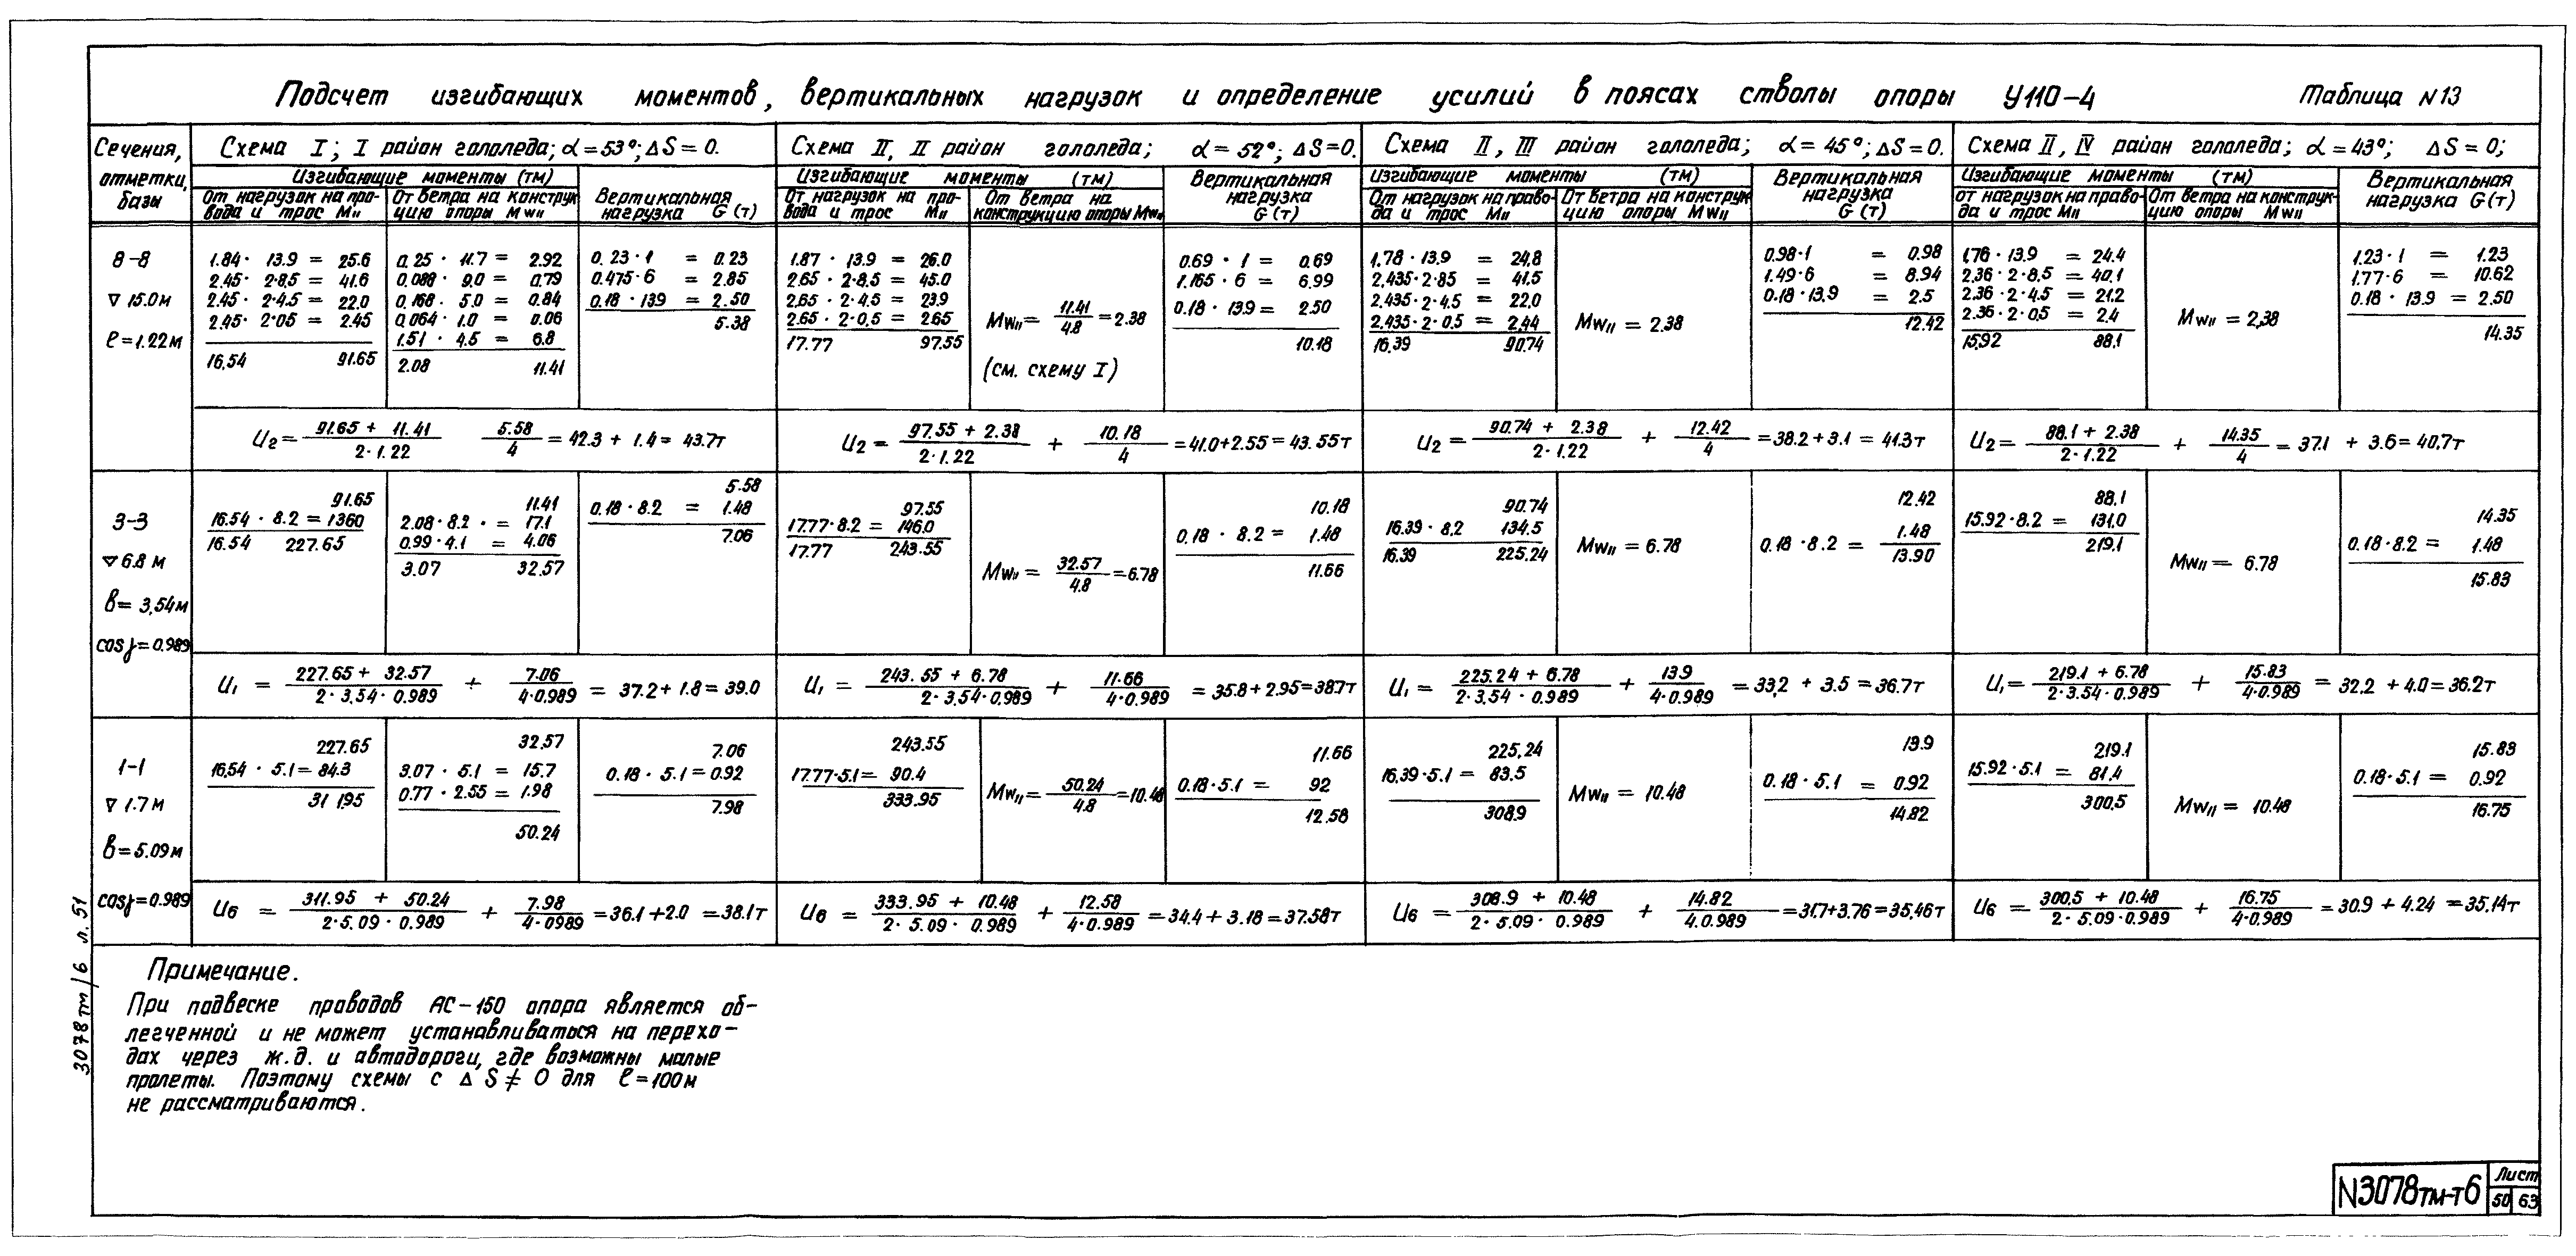 Подсчет изгибающих моментов, вертикальных нагрузок и определение усилий в поясах стволы опоры У110-4
Таблица N13
Сечения, отметки, базы
Схема I; I район гололеда; α=53°; ΔS=0.
Изгибающие моменты (тм)
От нагрузок на провода и трос M॥
От ветра на конструкцию опоры Mw॥
Вертикальная нагрузка G (т)
Схема II, II район гололеда; α=52°; ΔS=0.
Изгибающие моменты (тм)
От нагрузок на провода и трос M॥
От ветра на конструкцию опоры Mw॥
Вертикальная нагрузка G (т)
Схема II, III район гололеда; α=45°; ΔS=0.
Изгибающие моменты (тм)
От нагрузок на провода и трос M॥
От ветра на конструкцию опоры Mw॥
Вертикальная нагрузка G (т)
Схема II, IV район гололеда; α=43°; ΔS=0;
Изгибающие моменты (тм)
от нагрузок на провода и трос M॥
От ветра на конструкцию опоры Mw॥
Вертикальная нагрузка G(т)
8-8
▽ 15.0м
ℓ=1.22м
1.84· 13.9 = 25.6
2.45· 2·8.5 = 41.6
2.45· 2·4.5 = 22.0
2.45· 2·05 = 2.45
16,54 91.65
0.25 · 11.7 = 2.92
0.088 · 9.0 = 0.79
0.168 · 5.0 = 0.84
0.064 · 1.0 = 0.06
1.51 · 4.5 = 6.8
2.08 11.41
0.23 · 1 = 0.23
0.475·6 = 2.85
0.18 · 139 = 2.50
5.38
1.87 · 13.9 = 26.0
2.65 · 2·8.5 = 45.0
2.65 · 2·4.5 = 23.9
2.65 · 2·0.5 = 265
17.77 97.55
Mw॥= 11.41/4.8 = 2.38
(см. схему I)
0.69 · 1 = 0.69
1.165 · 6 = 6.99
0.18 · 13.9 = 2.50
10.18
1.78 · 13.9 = 24.8
2.435·2·85 = 41.5
2.435·2·4.5 = 22.0
2.435·2·0.5 = 2.44
16.39 90.74
Mw॥ = 2.38
0.98·1 = 0.98
1.49·6 = 8.94
0.18·13.9 = 2.5
12.42
1.76 · 13.9 = 24.4
2.36 · 2·8.5 = 40.1
2.36 · 2·4.5 = 21.2
2.36 · 2·0.5 = 2.4
15.92 88.1
Mw॥ = 2,38
1.23·1 = 1.23
1.77·6 = 10.62
0.18 · 13.9 = 2.50
14.35
U₂= (91.65 + 11.41)/(2·1.22) 5.58/4 = 42.3 + 1.4 = 43.7т
U₂ = (97.55 + 2.38)/(2·1.22) + 10.18/4 = 41.0+2.55 = 43.55т
U₂ = (90.74 + 2.38)/(2·1.22) + 12.42/4 = 38.2+3.1 = 41.3т
U₂ = (88.1 + 2.38)/(2·1.22) + 14.35/4 = 37.1 + 3.6=40.7т
3-3
▽6.8 м
в= 3,54м
cosγ=0.989
91.65
16.54 · 8.2 = 1360
16.54 227.65
11.41
2.08·8.2 · = 17.1
0.99·4.1 = 4.06
3.07 32.57
5.58
0.18 · 8.2 = 1.48
7.06
97.55
17.77·8.2 = 146.0
17.77 243.55
Mw॥ = 32.57/4.8 = 6.78
10.18
0.18 · 8.2 = 1.48
11.66
90.74
16.39·8.2 134.5
16.39 225.24
Mw॥ = 6.78
12.42
0.18 ·8.2 = 1.48
13.90
88.1
15.92·8.2 = 131.0
219.1
Mw॥ = 6.78
14.35
0.18·8.2 = 1.48
15.83
U₁ = (227.65 + 32.57)/(2·3.54·0.989) + 7.06/(4·0.989) = 37.2+1.8=39.0
U₁ = (243.55 + 6.78)/(2·3.54·0.989) + 11.66/(4·0.989) = 35.8+2.95=387т
U₁ = (225.24 + 6.78)/(2·3.54·0.989) + 13.9/(4·0.989) = 33,2 + 3.5 = 36.7т
U₁ = (219.1 + 6.78)/(2·3.54·0.989) + 15.83/(4·0.989) = 32.2 + 4.0=36.2т
1-1
▽ 1.7м
в=5.09м
cosγ=0.989
227.65
16,54 · 5.1 = 84.3
31 1.95
32.57
3.07 · 5.1 = 15.7
0.77 · 2.55 = 1.98
50.24
7.06
0.18 · 5.1 = 0.92
7.98
243.55
17.77·5.1 = 90.4
333.95
Mw॥ = 50.24/4.8 = 10.48
11.66
0.18·5.1 = 92
12.58
225,24
16.39·5.1 = 83.5
308.9
Mw॥ = 10.48
13.9
0.18·5.1 = 0.92
14.82
219.1
15.92·5.1 = 81.4
300.5
Mw॥ = 10.48
15.83
0.18·5.1 = 0.92
16.75
U₆ = (311.95 + 50.24)/(2·5.09·0.989) + 7.98/(4·0989) = 36.1+2.0 = 38.1т
U₆ = (333.95 + 10.48)/(2·5.09·0.989) + 12.58/(4·0.989) = 34.4+3.18=37.58т
U₆ = (308.9 + 10.48)/(2·5.09·0.989) + 14.82/(4.0.989) = 31.7+3.76=35.46т
U₆ = (300.5 + 10.48)/(2·5.09·0.989) + 16.75/(4·0.989) = 30.9 + 4.24 = 35.14т
Примечание.
При подвеске проводов АС-150 опора является об-
легченной и не может устанавливаться на перехо-
дах через ж.д. и автодороги, где возможны малые
пролеты. Поэтому схемы с ΔS≠0 для ℓ=100м
не рассматриваются.
3078тм/6 л.51
N3078тм-т6
Лист
50 63